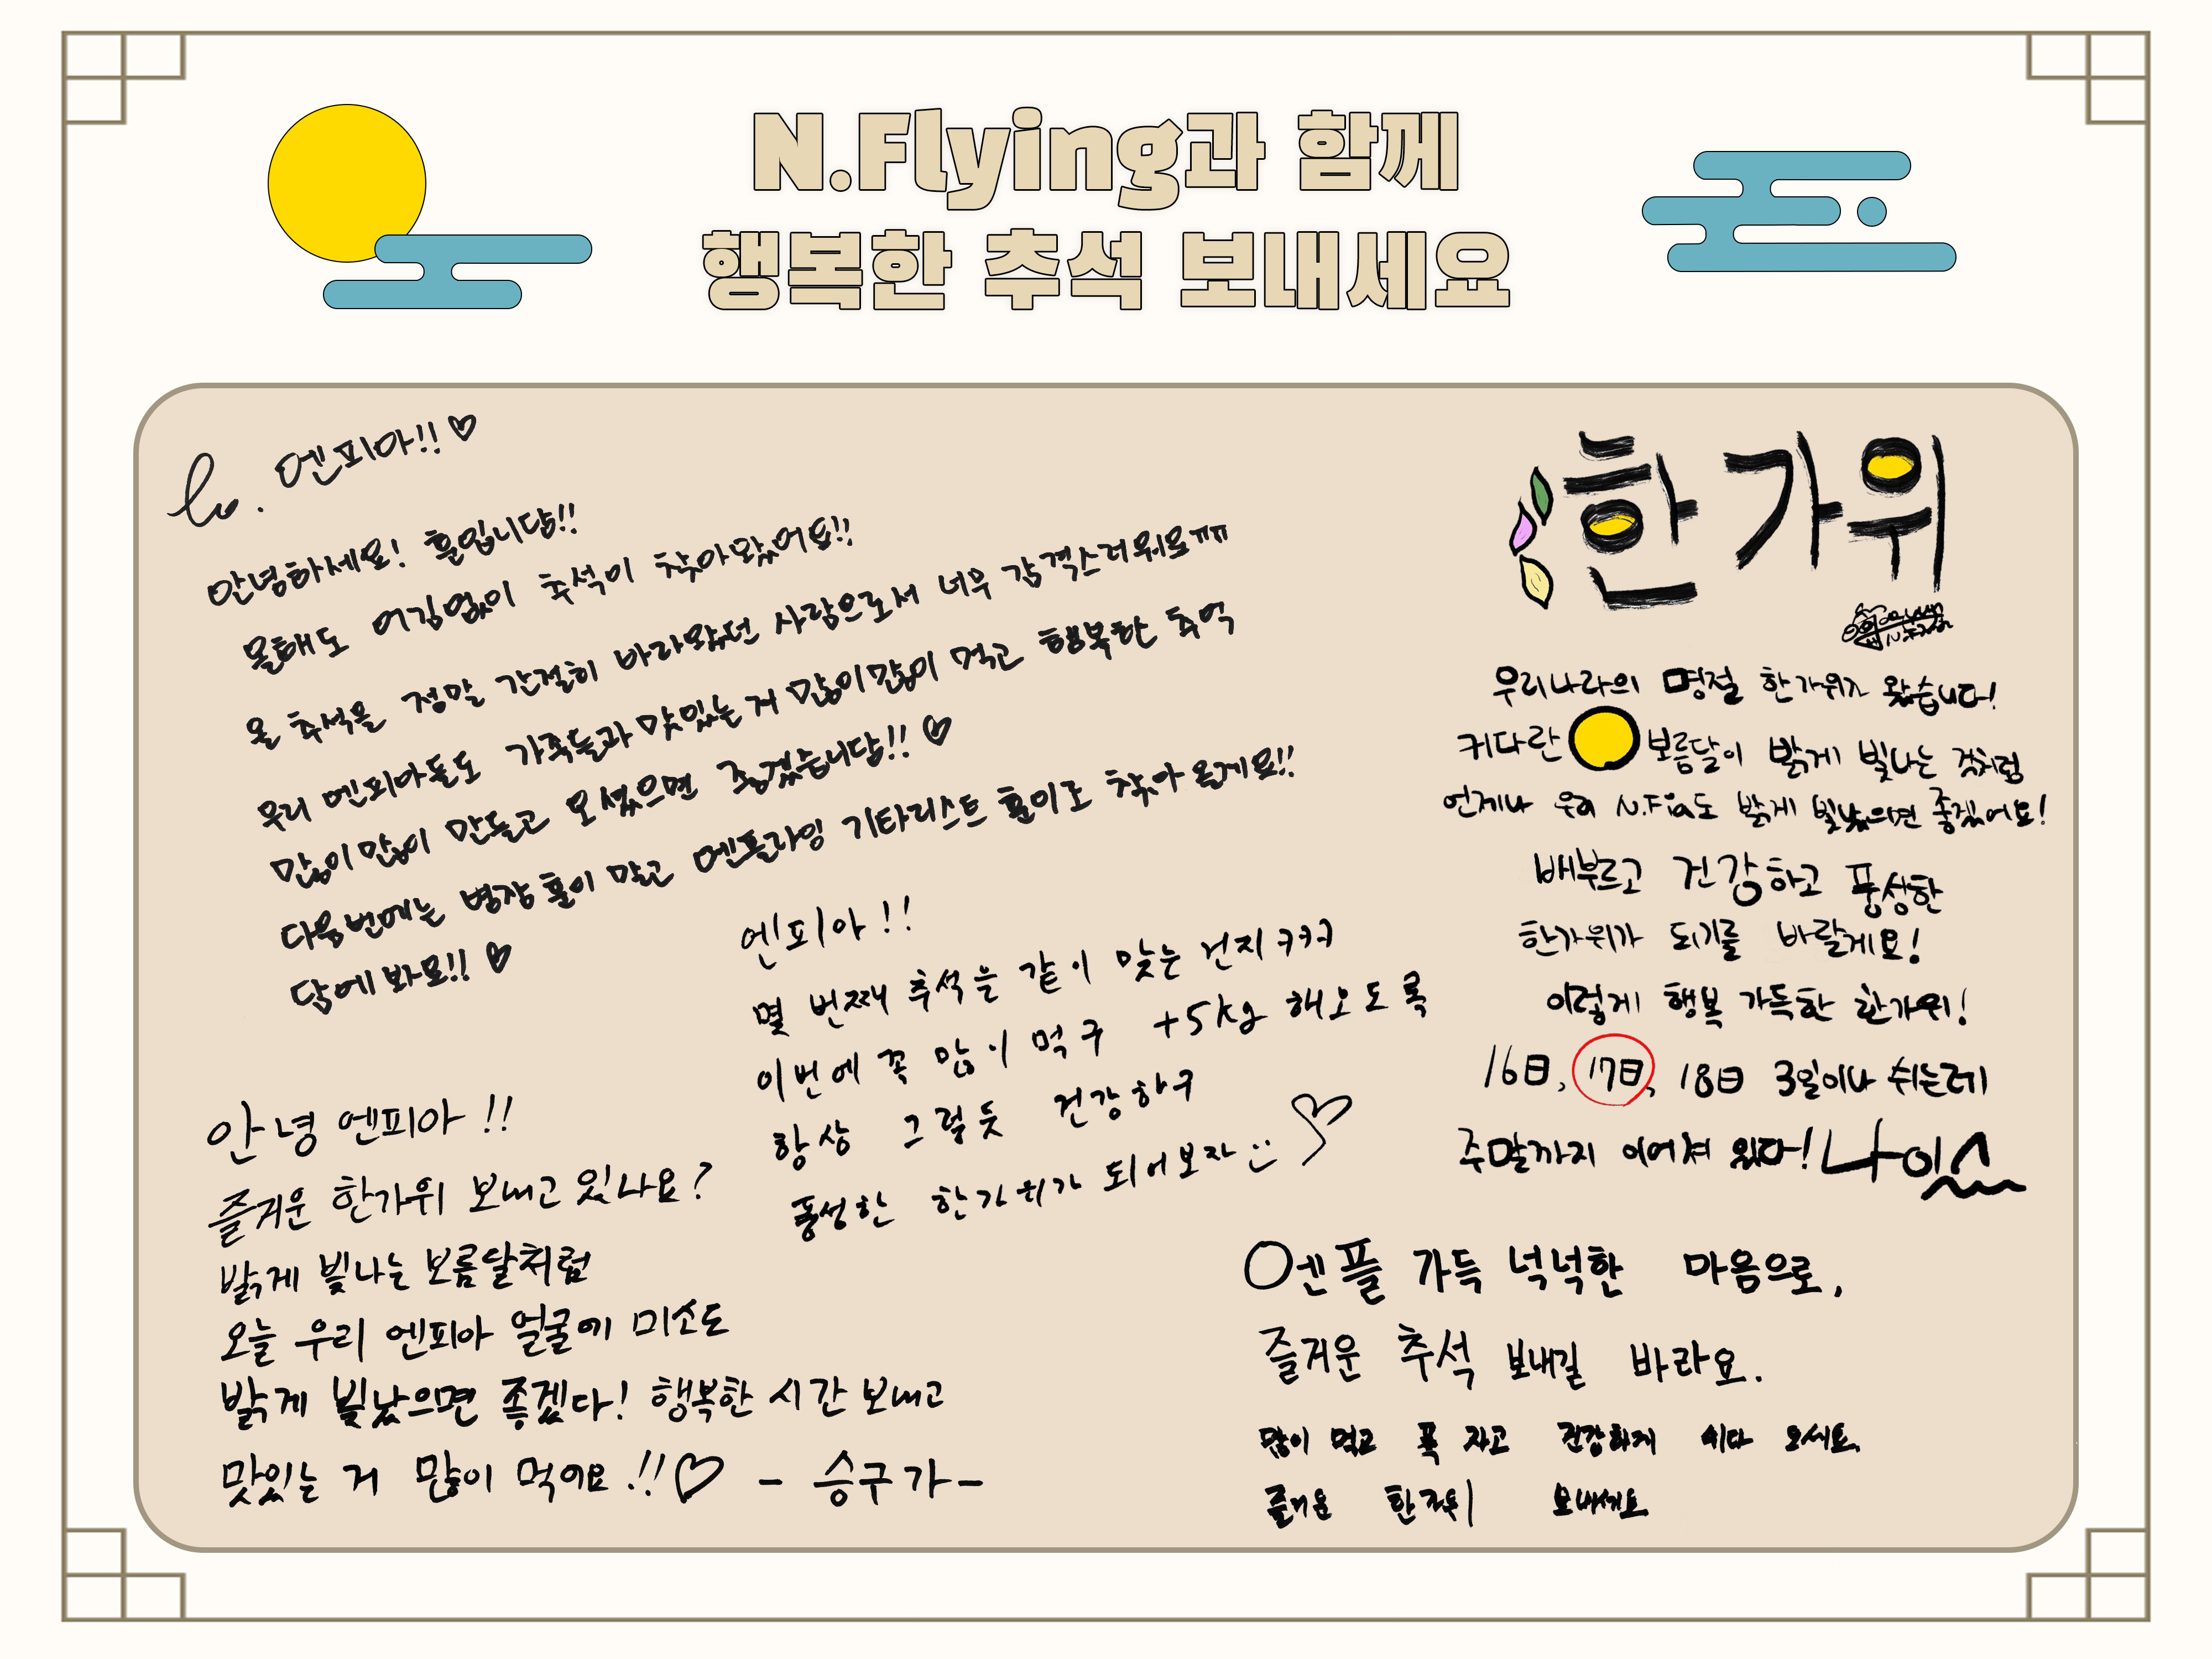 N.Flying과 함께
행복한 추석 보내세요
to. 엔피아!! ♡
안녕하세요! 훈입니담!!
올해도 어김없이 추석이 찾아왔어요!!
올 추석을 정말 간절히 바라왔던 사람으로서 너무 감격스러워요ㅠㅠ
우리 엔피아들도 가족들과 맛있는 거 많이많이 먹고 행복한 추억
많이많이 만들고 오셨으면 좋겠습니담!! ♡
다음번에는 병장 훈이 말고 엔플라잉 기타리스트 훈이로 찾아 올게요!!
담에 봐요!! ♡
엔피아!!
몇 번째 추석을 같이 맞는 건지 ㅋㅋㅋ
이번에 꼭 많이 먹구 +5kg 해오도록
항상 그렇듯 건강하구
풍성한 한가위가 되어보자 :) ♡
안녕 엔피아!!
즐거운 한가위 보내고 있나요?
밝게 빛나는 보름달처럼
오늘 우리 엔피아 얼굴에 미소도
밝게 빛났으면 좋겠다! 행복한 시간 보내고
맛있는 거 많이 먹어요!!♡ - 승구가-
한가위
우리나라의 명절 한가위가 왔습니다!
커다란 보름달이 밝게 빛나는 것처럼
언제나 우리 N.Fia도 밝게 빛났으면 좋겠어요!
배부르고 건강하고 풍성한
한가위가 되기를 바랄게요!
이렇게 행복 가득한 한가위!
16日, 17日, 18日 3일이나 쉬는데
주말까지 이어져 있다! 나이스
엔플 가득 넉넉한 마음으로,
즐거운 추석 보내길 바라요.
많이 먹고 푹 자고 건강하게 쉬다 오세요.
즐거운 한가위 보내세요